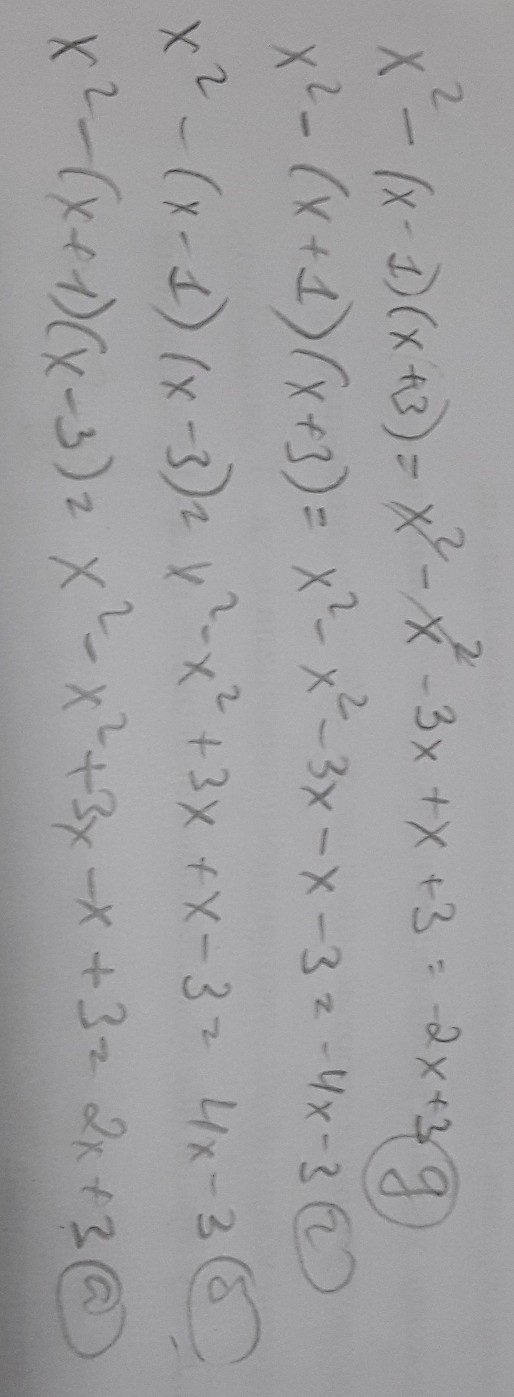 x² - (x - 1)(x + 3) = x² - x² - 3x + x + 3 = -2x + 3 g
x² - (x + 1)(x + 3) = x² - x² - 3x - x - 3 = -4x - 3 г
x² - (x - 1)(x - 3) = x² - x² + 3x + x - 3 = 4x - 3 б
x² - (x + 1)(x - 3) = x² - x² + 3x - x + 3 = 2x + 3 а